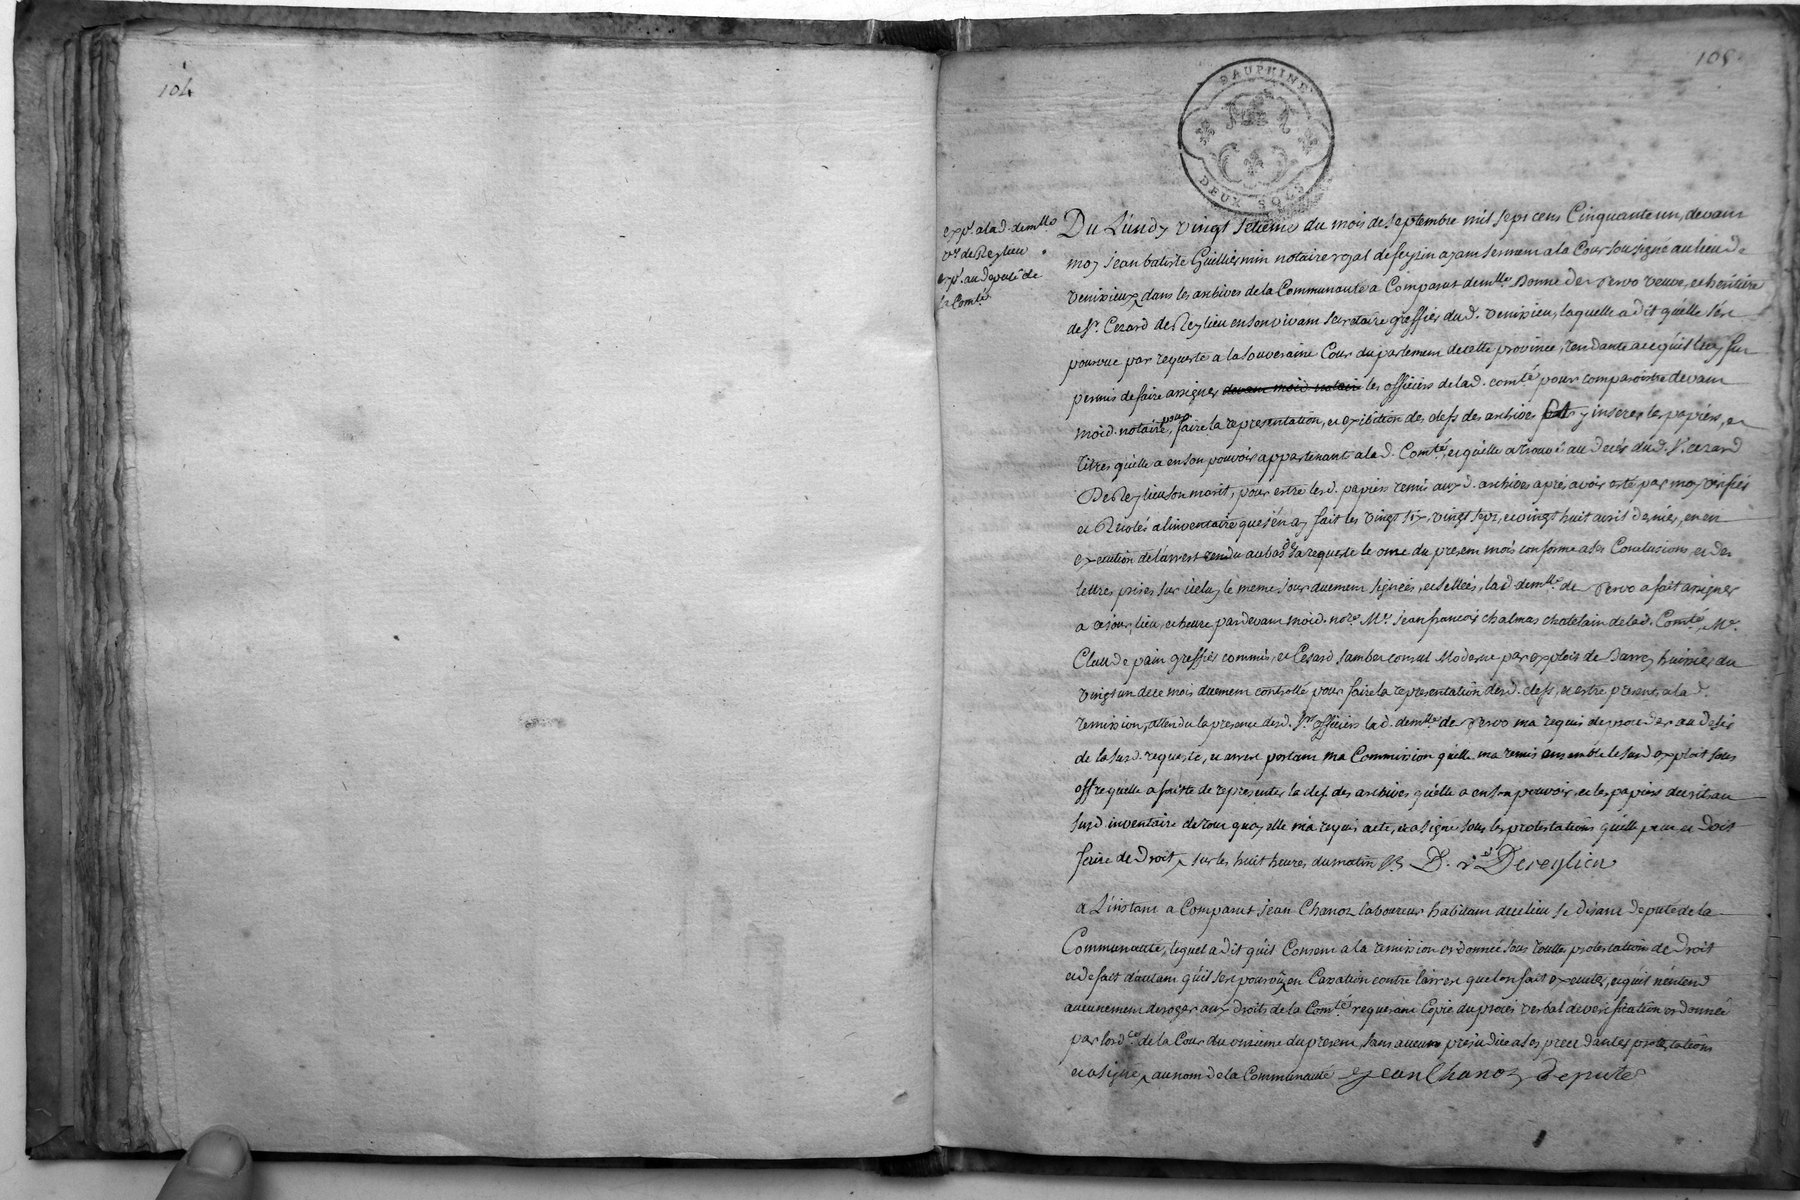 104
105
DAUPHINE
DEUX SOLS
exp.é a lad. demlle
vve de Reylieu
exp.é au deputé de
la Comté
Du Lundy vingt setieme du mois de septembre mil sept cens Cinquante un, devant
moy jean batiste Guilliermin notaire royal de feyzin ayant serment a la Cour sousigné au lieu de
venixieux dans les archives de la Communauté a Comparut demlle Bonne de Servo veuve, et héritière
de Sr. Cezard de Reylieu en son vivant secretaire greffier du d. venixieu, laquelle a dit qu'elle s'est
pourvue par requeste a la souveraine Cour du parlement de cette province, tendante a ce qu'il luy fut
permis de faire assigner devant moid. notaire les officiers de lad. comté pour comparoistre devant
moid. notaire, pour faire la representation, et exibition des clefs des archives y inserer les papiers, et
titres qu'elle a en son pouvoir appartenant a lad. Comté, et qu'elle a trouvé au decés dud. Sr. cezard
De Reylieu son marit, pour estre lesd. papiers remis auxd. archives aprés avoir esté par moy verifiés
et Recolés a l'inventaire que j'en ay fait les vingt six, vingt sept, et vingt huit avril dernier, et en
execution de l'arrest rendu au bas de sa requeste le onze du present mois conforme a ses Conclusions, et des
lettres prises sur iceluy le meme jour duement signées, et sellées, lad. demlle de Servo a fait assigner
a ce jour, lieu, et heure pardevant moid. nore. Mr. jean françois chalmas chatelain de lad. Comté, Me.
Claude pain greffier commis, et Cesard jambe consul Moderne par exploit de Barrey huissier du
vingt un de ce mois duement controllé pour faire la representation desd. clefs, et estre present a la d.
remission, attendu la presence desd. Srs officiers lad. demlle de Servo ma requis de proceder au desir
de la susd. requeste, et arrest portant ma Commission qu'elle ma remis ensemble le susd. exploit sous
offre qu'elle a faitte de representer la clef des archives qu'elle a en son pouvoir, et les papiers decrits au
susd. inventaire de tout quoy elle m'a requis acte, et a signé sous les protestations qu'elle peut et doit
faire de Droit sur les huit heures du matin D. ve Dereylieu
a L'instant a Comparut jean Chanoz laboureur habitant de ce lieu se disant deputé de la
Communauté, lequel a dit qu'il Consent a la remission ordonnée sous toutte protestation de Droit
et de fait d'autant qu'il s'est pourvû en Cassation contre l'arrest que l'on fait executer, et qu'il n'entend
aucunement deroger aux droits de la Comté requerant Copie du procés verbal de verification ordonnée
par lordce de la Cour du onzieme du present, sans aucun prejudice a ses precedantes protestations
et a signé au nom de la Communauté jean Chanoz depute